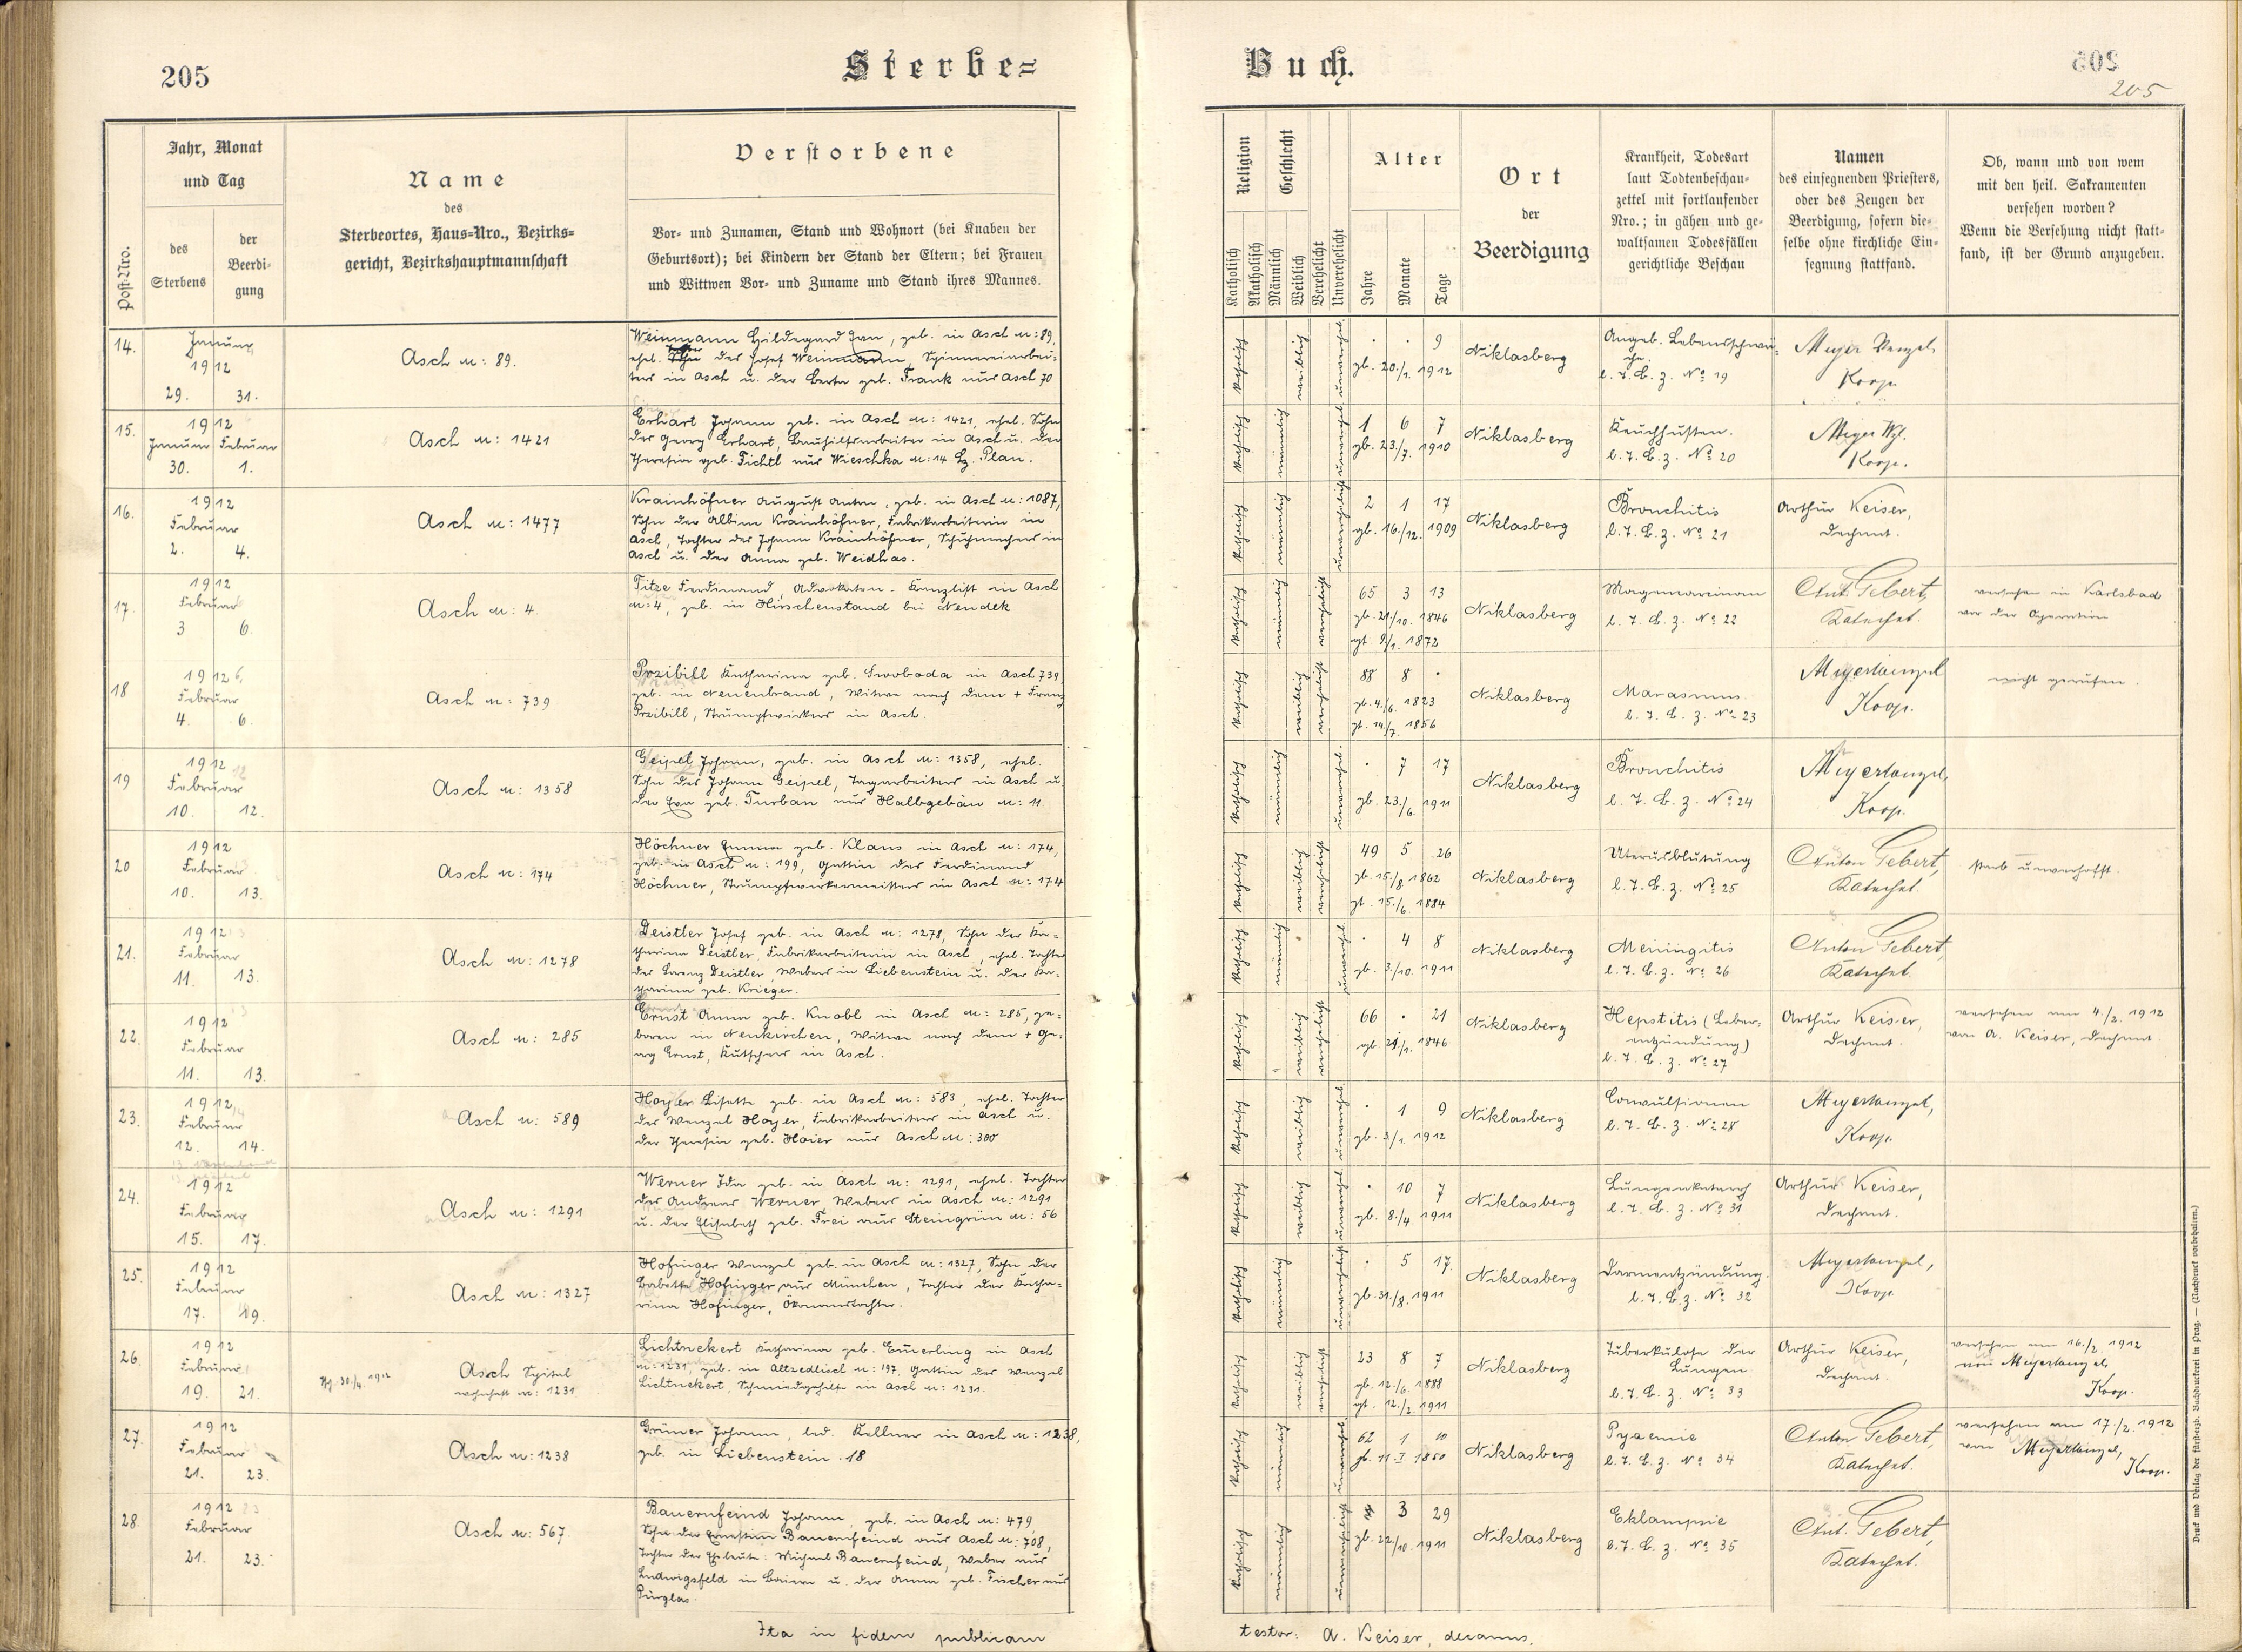 205
Sterbe=
Jahr, Monat
und Tag
des
Sterbens
der
Beerdi-
gung
Post-Nro.
Name
des
Sterbeortes, Haus-Nro., Bezirks-
gericht, Bezirkshauptmannschaft
Verstorbene
Vor- und Zunamen, Stand und Wohnort (bei Knaben der
Geburtsort); bei Kindern der Stand der Eltern; bei Frauen
und Wittwen Vor- und Zuname und Stand ihres Mannes.
14.
Jänner
1912
29. 31.
Asch N: 89.
Weinmann Hildegard Eva, geb. in Asch N: 89,
ehel. Tochter des Josef Weinmann, Spinnereiarbei-
ters in Asch u. der Berta geb. Frank aus Asch 70
15.
1912
Jänner Februar
30. 1.
Asch N: 1421
Erhart Johann geb. in Asch N: 1421, ehel. Sohn
des Georg Erhart, Bauhilfsarbeiter in Asch u. der
Theresia geb. Fichtl aus Wieschka N: 14 Bz. Plan.
16.
1912
Februar
2. 4.
Asch N: 1477
Krainhöfner August Anton, geb. in Asch N: 1087,
Sohn der Albine Krainhöfner, Fabrikarbeiterin in
Asch, Tochter des Johann Krainhöfner, Schuhmachers in
Asch u. der Anna geb. Weidhas.
17.
1912
Februar
3 6.
Asch N: 4.
Titze Ferdinand, Advokaten-Kanzlist in Asch
N: 4, geb. in Hirschenstand bei Neudek
18
1912
Februar
4. 6.
Asch N: 739
Przibill Katharina geb. Swoboda in Asch 739
geb. in Neuenbrand, Witwe nach dem + Franz
Przibill, Strumpfwirkers in Asch.
19
1912
Februar
10. 12.
Asch N: 1358
Geipel Johann, geb. in Asch N: 1358, ehel.
Sohn des Johann Geipel, Tagarbeiters in Asch u.
der Eva geb. Turban aus Halbgebäu N: 11.
20
1912
Februar
10. 13.
Asch N: 174
Höchner Emma geb. Klaus in Asch N: 174,
geb. in Asch N: 199, Gattin des Ferdinand
Höchner, Strumpfwirkermeisters in Asch N: 174
21.
1912
Februar
11. 13.
Asch N: 1278
Deistler Josef geb. in Asch N: 1278, Sohn der Ka-
tharina Deistler, Fabrikarbeiterin in Asch, ehel. Tochter
des Lorenz Deistler Webers in Liebenstein u. der Ka-
tharina geb. Krieger.
22.
1912
Februar
11. 13.
Asch N: 285
Ernst Anna geb. Knobl in Asch N: 285, ge-
boren in Neukirchen, Witwe nach dem + Ge-
org Ernst, Kutschers in Asch.
23.
1912
Februar
12. 14.
Asch N: 589
Hoyer Lisette geb. in Asch N: 583, ehel. Tochter
des Wenzel Hoyer, Fabrikarbeiters in Asch u.
der Theresia geb. Hoier aus Asch N: 300
24.
1912
Februar
15. 17.
Asch N: 1291
Werner Ida geb. in Asch N: 1291, ehel. Tochter
des Andreas Werner Webers in Asch N: 1291
u. der Elisabeth geb. Frei aus Steingrün N: 56
25.
1912
Februar
17. 19.
Asch N: 1327
Hofinger Wenzel geb. in Asch N: 1327, Sohn der
Babette Hofinger aus München, Tochter der Katha-
rina Hofinger, Ökonomstochter.
26.
1912
Februar
19. 21.
Asch Spital
wohnhaft N: 1231
Lichtnekert Katharina geb. Emerling in Asch
N: 1231, geb. in Altzedlisch N: 197, Gattin des Wenzel
Lichtnekert, Schmiedgehilfe in Asch N: 1231.
27.
1912
Februar
21. 23.
Asch N: 1238
Grüner Johann, led. Kellner in Asch N: 1238,
geb. in Liebenstein 18
28.
1912
Februar
21. 23.
Asch N: 567.
Bauernfeind Johann, geb. in Asch N: 479,
Sohn der Ernestine Bauernfeind aus Asch N: 708,
Tochter der Eheleute: Michael Bauernfeind, Weber aus
Ludwigsfeld in Baiern u. der Anna geb. Fischer aus
Pürglas.
Ita in fidem publicam
Buch.
205
Religion
Katholisch
Akatholisch
Geschlecht
Männlich
Weiblich
Verehelicht
Unverehelicht
Alter
Jahre
Monate
Tage
Ort
der
Beerdigung
Krankheit, Todesart
laut Todtenbeschau-
zettel mit fortlaufender
Nro.; in gähen und ge-
waltsamen Todesfällen
gerichtliche Beschau
Namen
des einsegnenden Priesters,
oder des Zeugen der
Beerdigung, sofern die-
selbe ohne kirchliche Ein-
segnung stattfand.
Ob, wann und von wem
mit den heil. Sakramenten
versehen worden?
Wenn die Versehung nicht statt-
fand, ist der Grund anzugeben.
katholisch weiblich unverehel.
. . 9
gb. 20./1. 1912
Niklasberg
Angeb. Lebensschwä-
che.
l. T. B. z. No 19
Meyer Wenzel,
Koop.
katholisch männlich unverehel.
1 6 7
gb. 23./7. 1910
Niklasberg
Keuchhusten.
l. T. B. z. No 20
Meyer Wzl.
Koop.
katholisch männlich unverehelicht
2 1 17
gb. 16./12. 1909
Niklasberg
Bronchitis
l. T. B. z. No 21
Arthur Keiser,
Dechant.
katholisch männlich verehelicht
65 3 13
gb. 21/10. 1846
gt 9/1. 1872
Niklasberg
Magenkarcinom
l. T. B. z. No 22
Ant. Gebert,
Katechet.
versehen in Karlsbad
vor der Operation
katholisch weiblich verehelicht
88 8 .
gb. 4./6. 1823
gt. 14/7. 1856
Niklasberg
Marasmus.
l. T. B. z. No 23
Meyer Wenzel
Koop.
nicht gerufen.
katholisch männlich unverehel.
. 7 17
gb. 23./6. 1911
Niklasberg
Bronchitis
l. T. B. z. No 24
Meyer Wenzel,
Koop.
katholisch weiblich verehelicht
49 5 26
gb. 15./8. 1862
gt. 15./6. 1884
Niklasberg
Uterusblutung
l. T. B. z. No 25
Anton Gebert,
Katechet.
starb unverhofft.
katholisch männlich unverehel.
. 4 8
gb. 3./10. 1911
Niklasberg
Meningitis
l. T. B. z. No 26
Anton Gebert,
Katechet.
katholisch weiblich verehelicht
66 . 21
gb. 21./1. 1846
Niklasberg
Hepatitis (Leber-
entzündung)
l. T. B. z. No 27
Arthur Keiser,
Dechant.
versehen am 4./2. 1912
von A. Keiser, Dechant.
katholisch weiblich unverehel.
. 1 9
gb. 3/1. 1912
Niklasberg
Convulsionen
l. T. B. z. No 28
Meyer Wenzel,
Koop.
katholisch weiblich unverehel.
. 10 7
gb. 8./4. 1911
Niklasberg
Lungenkatarrh
l. T. B. z. No 31
Arthur Keiser,
Dechant.
katholisch männlich unverehelicht
. 5 17.
gb. 31./8. 1911
Niklasberg
Darmentzündung.
l. T. B. z. No 32
Meyer Wenzel,
Koop.
katholisch weiblich verehelicht
23 8 7
gb. 12./6. 1888
gt. 12./2. 1911
Niklasberg
Tuberkulose der
Lungen
l. T. B. z. No 33
Arthur Keiser,
Dechant.
versehen am 16./2. 1912
von Meyer Wenzel,
Koop.
katholisch männlich unverehel.
62 1 10
gb. 11 I 1850
Niklasberg
Pyaemie
l. T. B. z. No 34
Anton Gebert,
Katechet.
versehen am 17./2. 1912
von Meyer Wenzel,
Koop.
katholisch männlich unverehelicht
3 29
gb. 22/10. 1911
Niklasberg
Eklampsie
l. T. B. z. No 35
Ant. Gebert,
Katechet.
testor: A. Keiser, decanus.
Druck und Verlag der fürsterzb. Buchdruckerei in Prag. — (Nachdruck vorbehalten.)